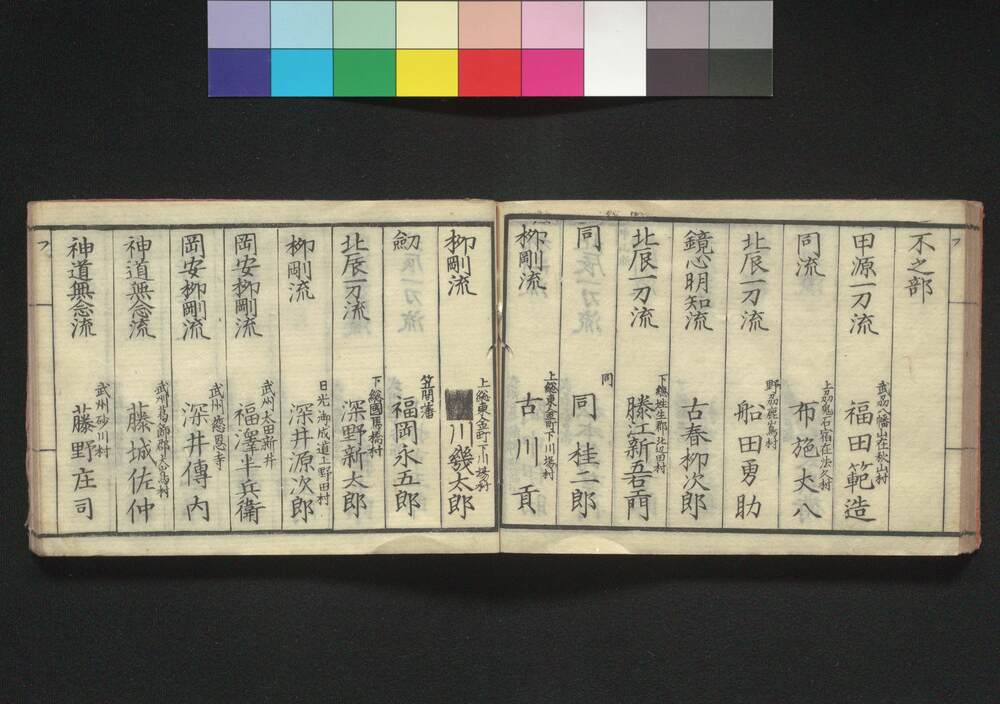 フ
不之部
甲源一刀流
武刕八幡山在秋山村
福田範造
同流
上刕鬼石宿在法久村
布施丈八
北辰一刀流
野刕村
船田勇助
鏡心明知流
古春栁次郎
北辰一刀流
下郡北辺田村
滕江新吾
同
同
同桂二郎
栁剛流
上総東金町下川塲村
古川貢
栁剛流
上総東金町下川塲村
川幾太郎
劔
笠間藩
福岡永五郎
北辰一刀流
下総國馬橋村
深野新太郎
栁剛流
日光御成道上野田村
深井源次郎
岡安栁剛流
武州太田新井
福澤半兵衛
岡安栁剛流
武州慈恩寺
深井傳内
神道無念流
武州葛飾郡大嶌村
藤城佐仲
神道無念流
武州砂川村
藤野庄司
フ